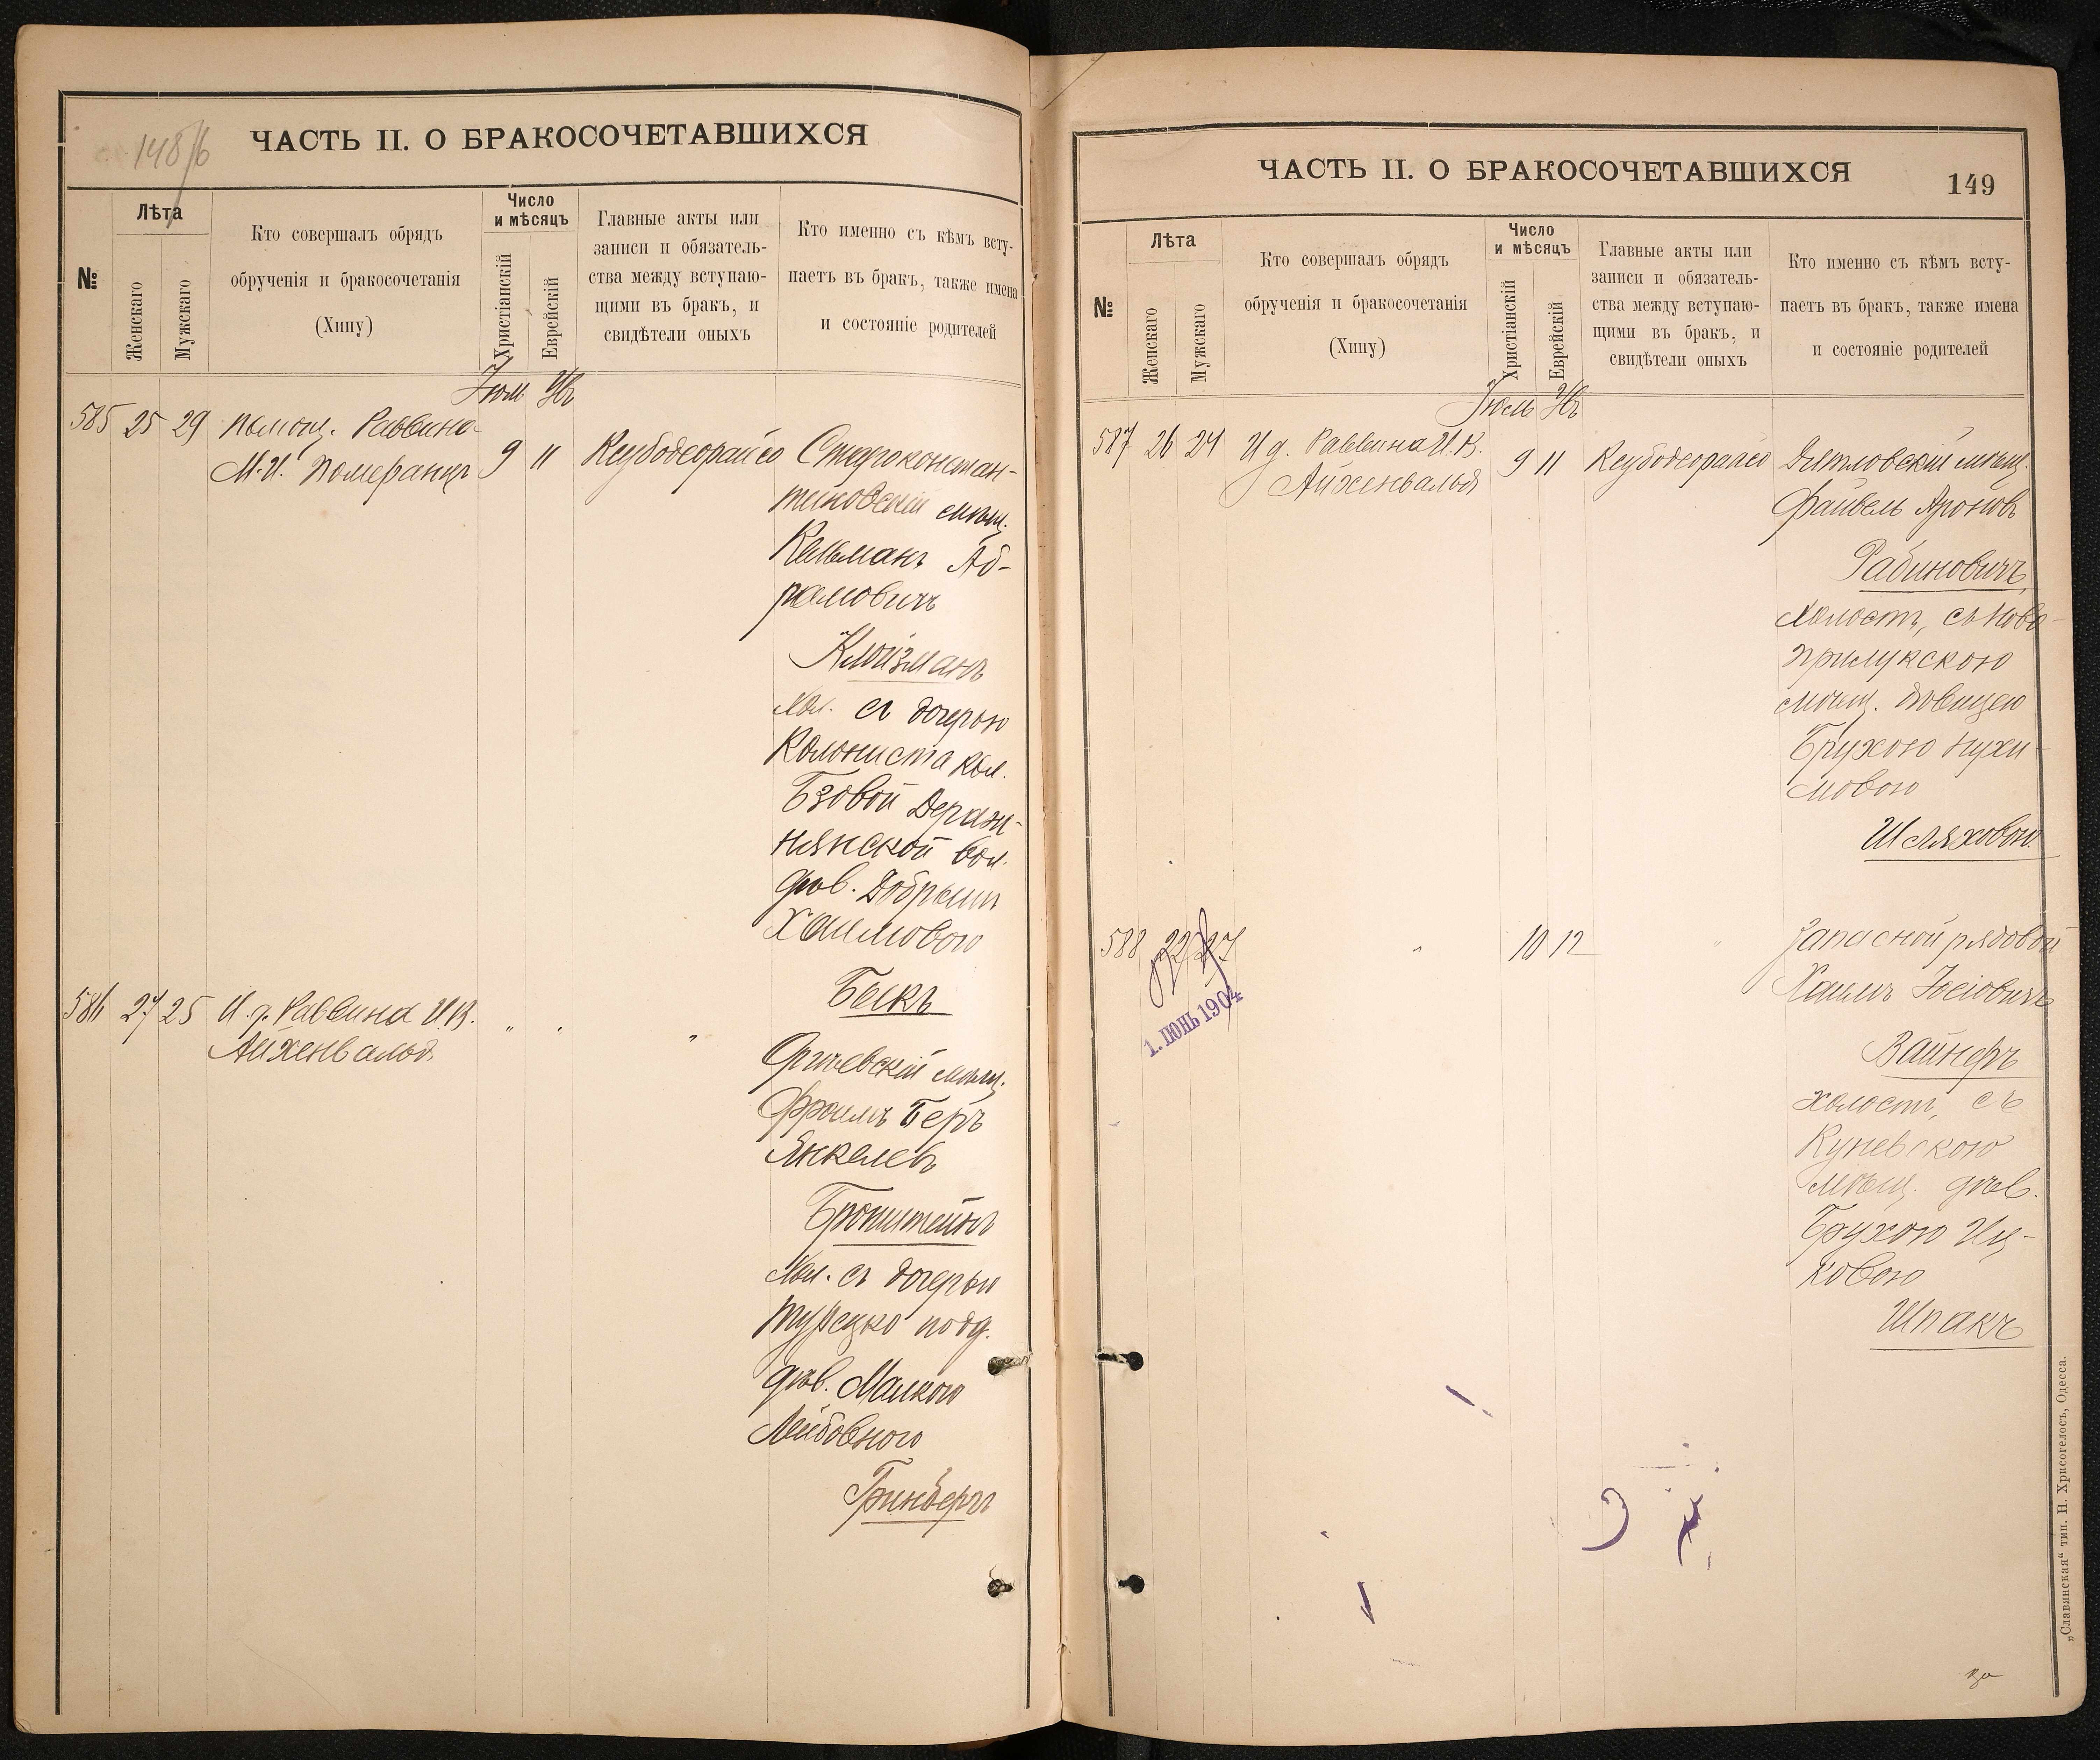 148/б
ЧАСТЬ II. О БРАКОСОЧЕТАВШИХСЯ
№
Лѣта
Женскаго
Мужскаго
Кто совершалъ обрядъ
обрученія и бракосочетанія
(Хипу)
Число
и мѣсяцъ
Христіанскій
Еврейскій
Главные акты или
записи и обязатель-
ства между вступаю-
щими въ бракъ, и
свидѣтели оныхъ
Кто именно съ кѣмъ всту-
паетъ въ бракъ, также имена
и состояніе родителей
585 25 29 Помощ. Раввина
М. И. Померанцъ
9 11
Староконстан-
тиновскій мѣщ.
Кельманъ Аб-
рамовичъ
Клойзманъ
хол. съ дочерью
Колониста кол.
Бзовой Дераж-
нянской вол.
дѣв.
Хаимовою
Быкъ
586 27 25 И. д. Раввина И. В.
Айхенвальдъ
„ „ „
мѣщ.
Фроимъ Беръ
Янкелевъ
Бронштейнъ
хол. съ дочерью
турецко подд.
дѣв. Малкою
Лейбовною
Гринбергъ
ЧАСТЬ II. О БРАКОСОЧЕТАВШИХСЯ
149
№
Лѣта
Женскаго
Мужскаго
Кто совершалъ обрядъ
обрученія и бракосочетанія
(Хипу)
Число
и мѣсяцъ
Христіанскій
Еврейскій
Главные акты или
записи и обязатель-
ства между вступаю-
щими въ бракъ, и
свидѣтели оныхъ
Кто именно съ кѣмъ всту-
паетъ въ бракъ, также имена
и состояніе родителей
Іюль
587 26 24 И д. Раввина И. В.
Айхенвальдъ
9 11
Дятловскій мѣщ.
Файвель Ароновъ
Рабиновичъ,
холостъ, съ Ново-
прилукскою
мѣщ. дѣвицею
Брухою Нухи-
мовою
Шляховою.
588 22 27 „ 10 12 „
Запасной рядовой
Хаимъ Іосіовичъ
Вайнеръ
холостъ, съ
Куневскою
мѣщ. дѣв.
Брухою Иц-
ковою
Шпакъ
1. ІЮНЬ 1904
„Славянская“ тип. Н. Хрисогелосъ, Одесса.